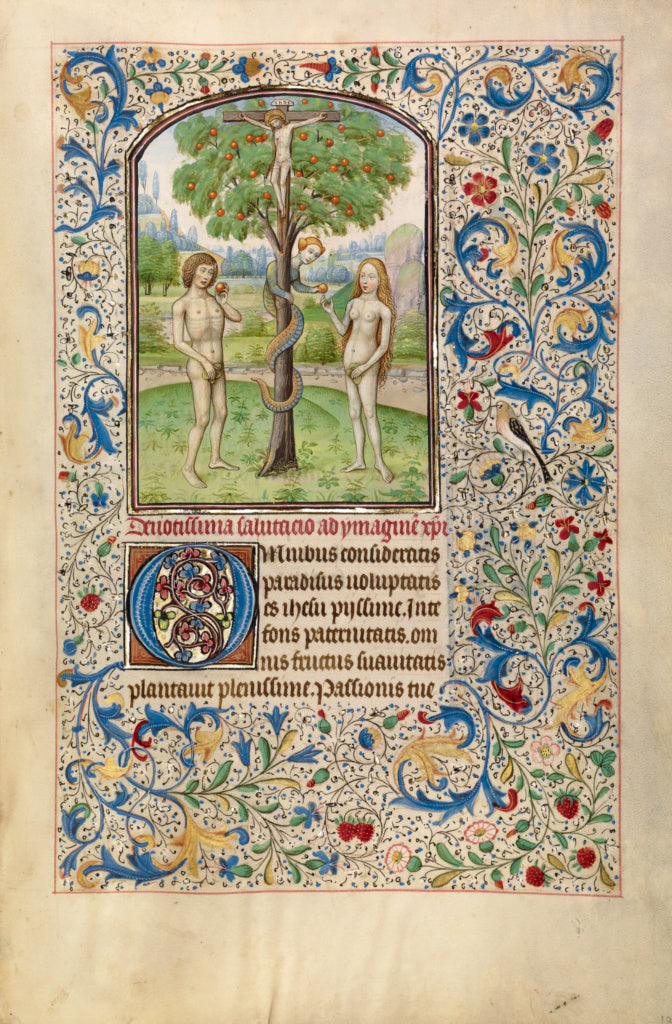 Devotissima salutacio ad ymaginē xp̄i
OMnibus consideratis
paradisus uoluptatis
es ihesu pijssime. In te
fons paternitatis. om
nis fructus suauitatis
plantauit plenissime. Passionis tue